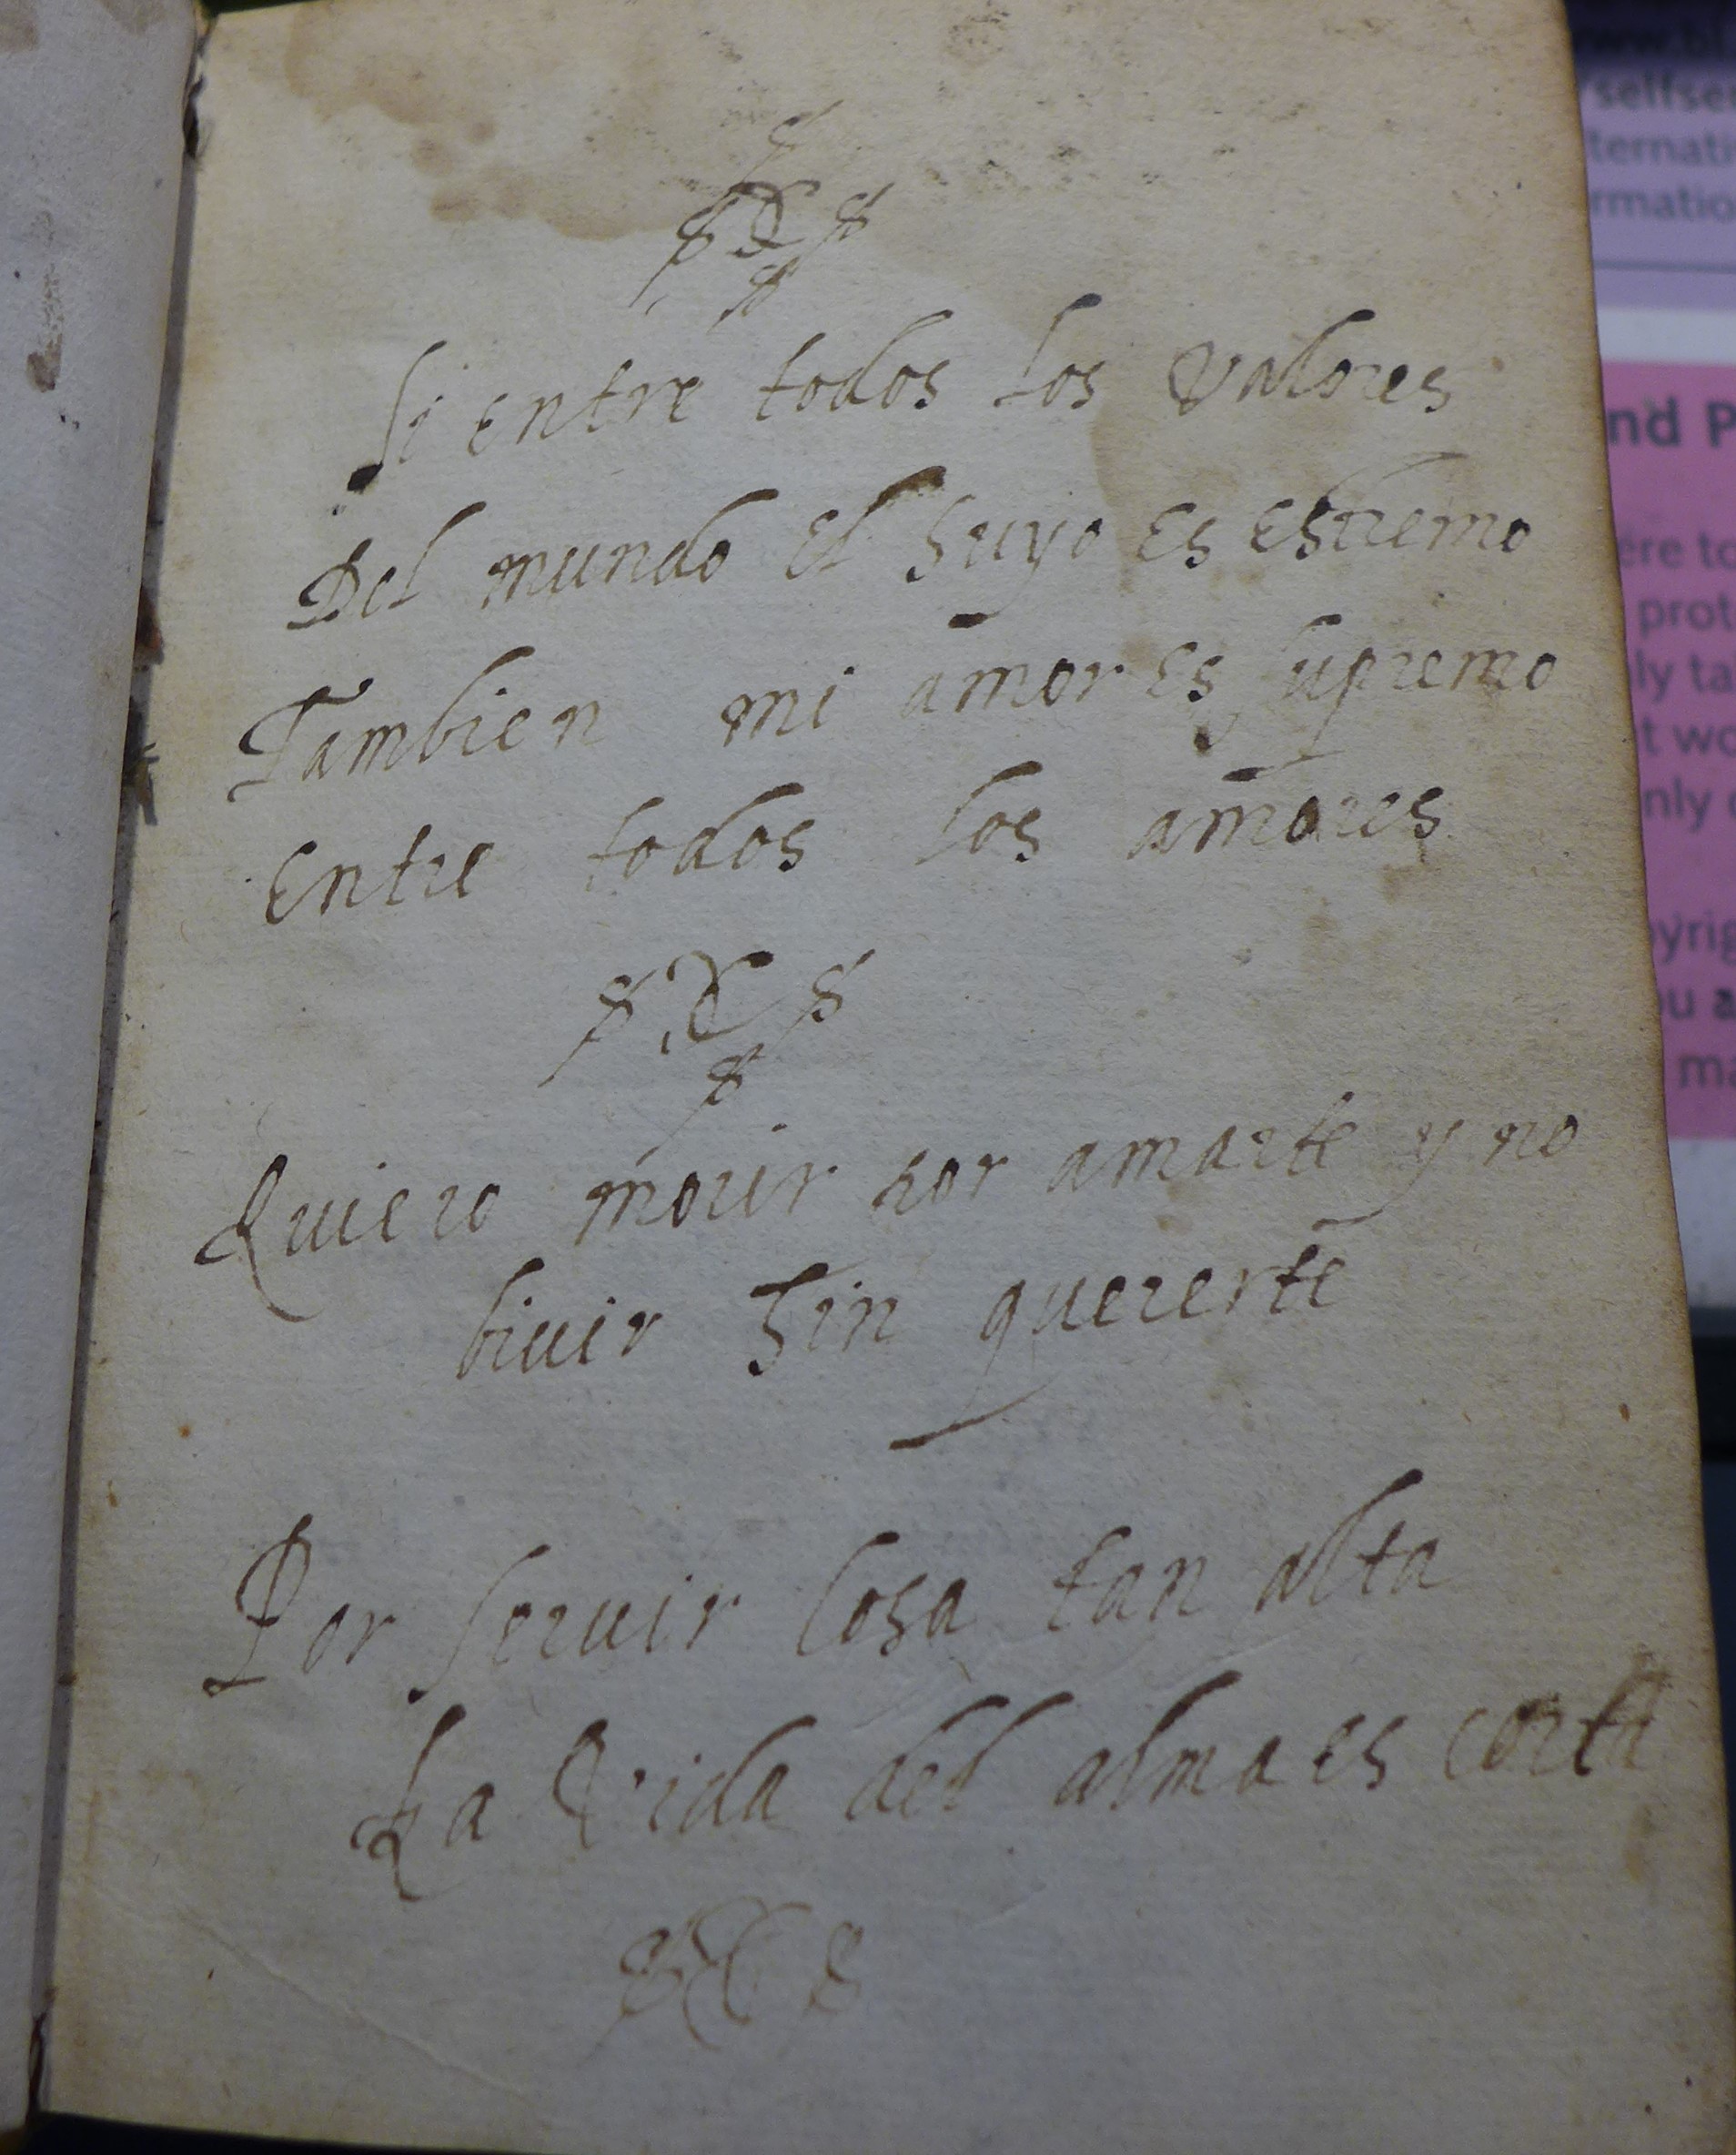 Si entre todos los valores
Del mundo el suyo es estremo
Tambien mi amor es supremo
Entre todos los amores
Quiero morir por amarte y no
biuir sin quererte
Por seruir cosa tan alta
La vida del alma es corta
www.bl
/selfse
ternati
rmatio
nd P
ere to
prot
ly ta
t wo
nly
pyrig
ou a
ma